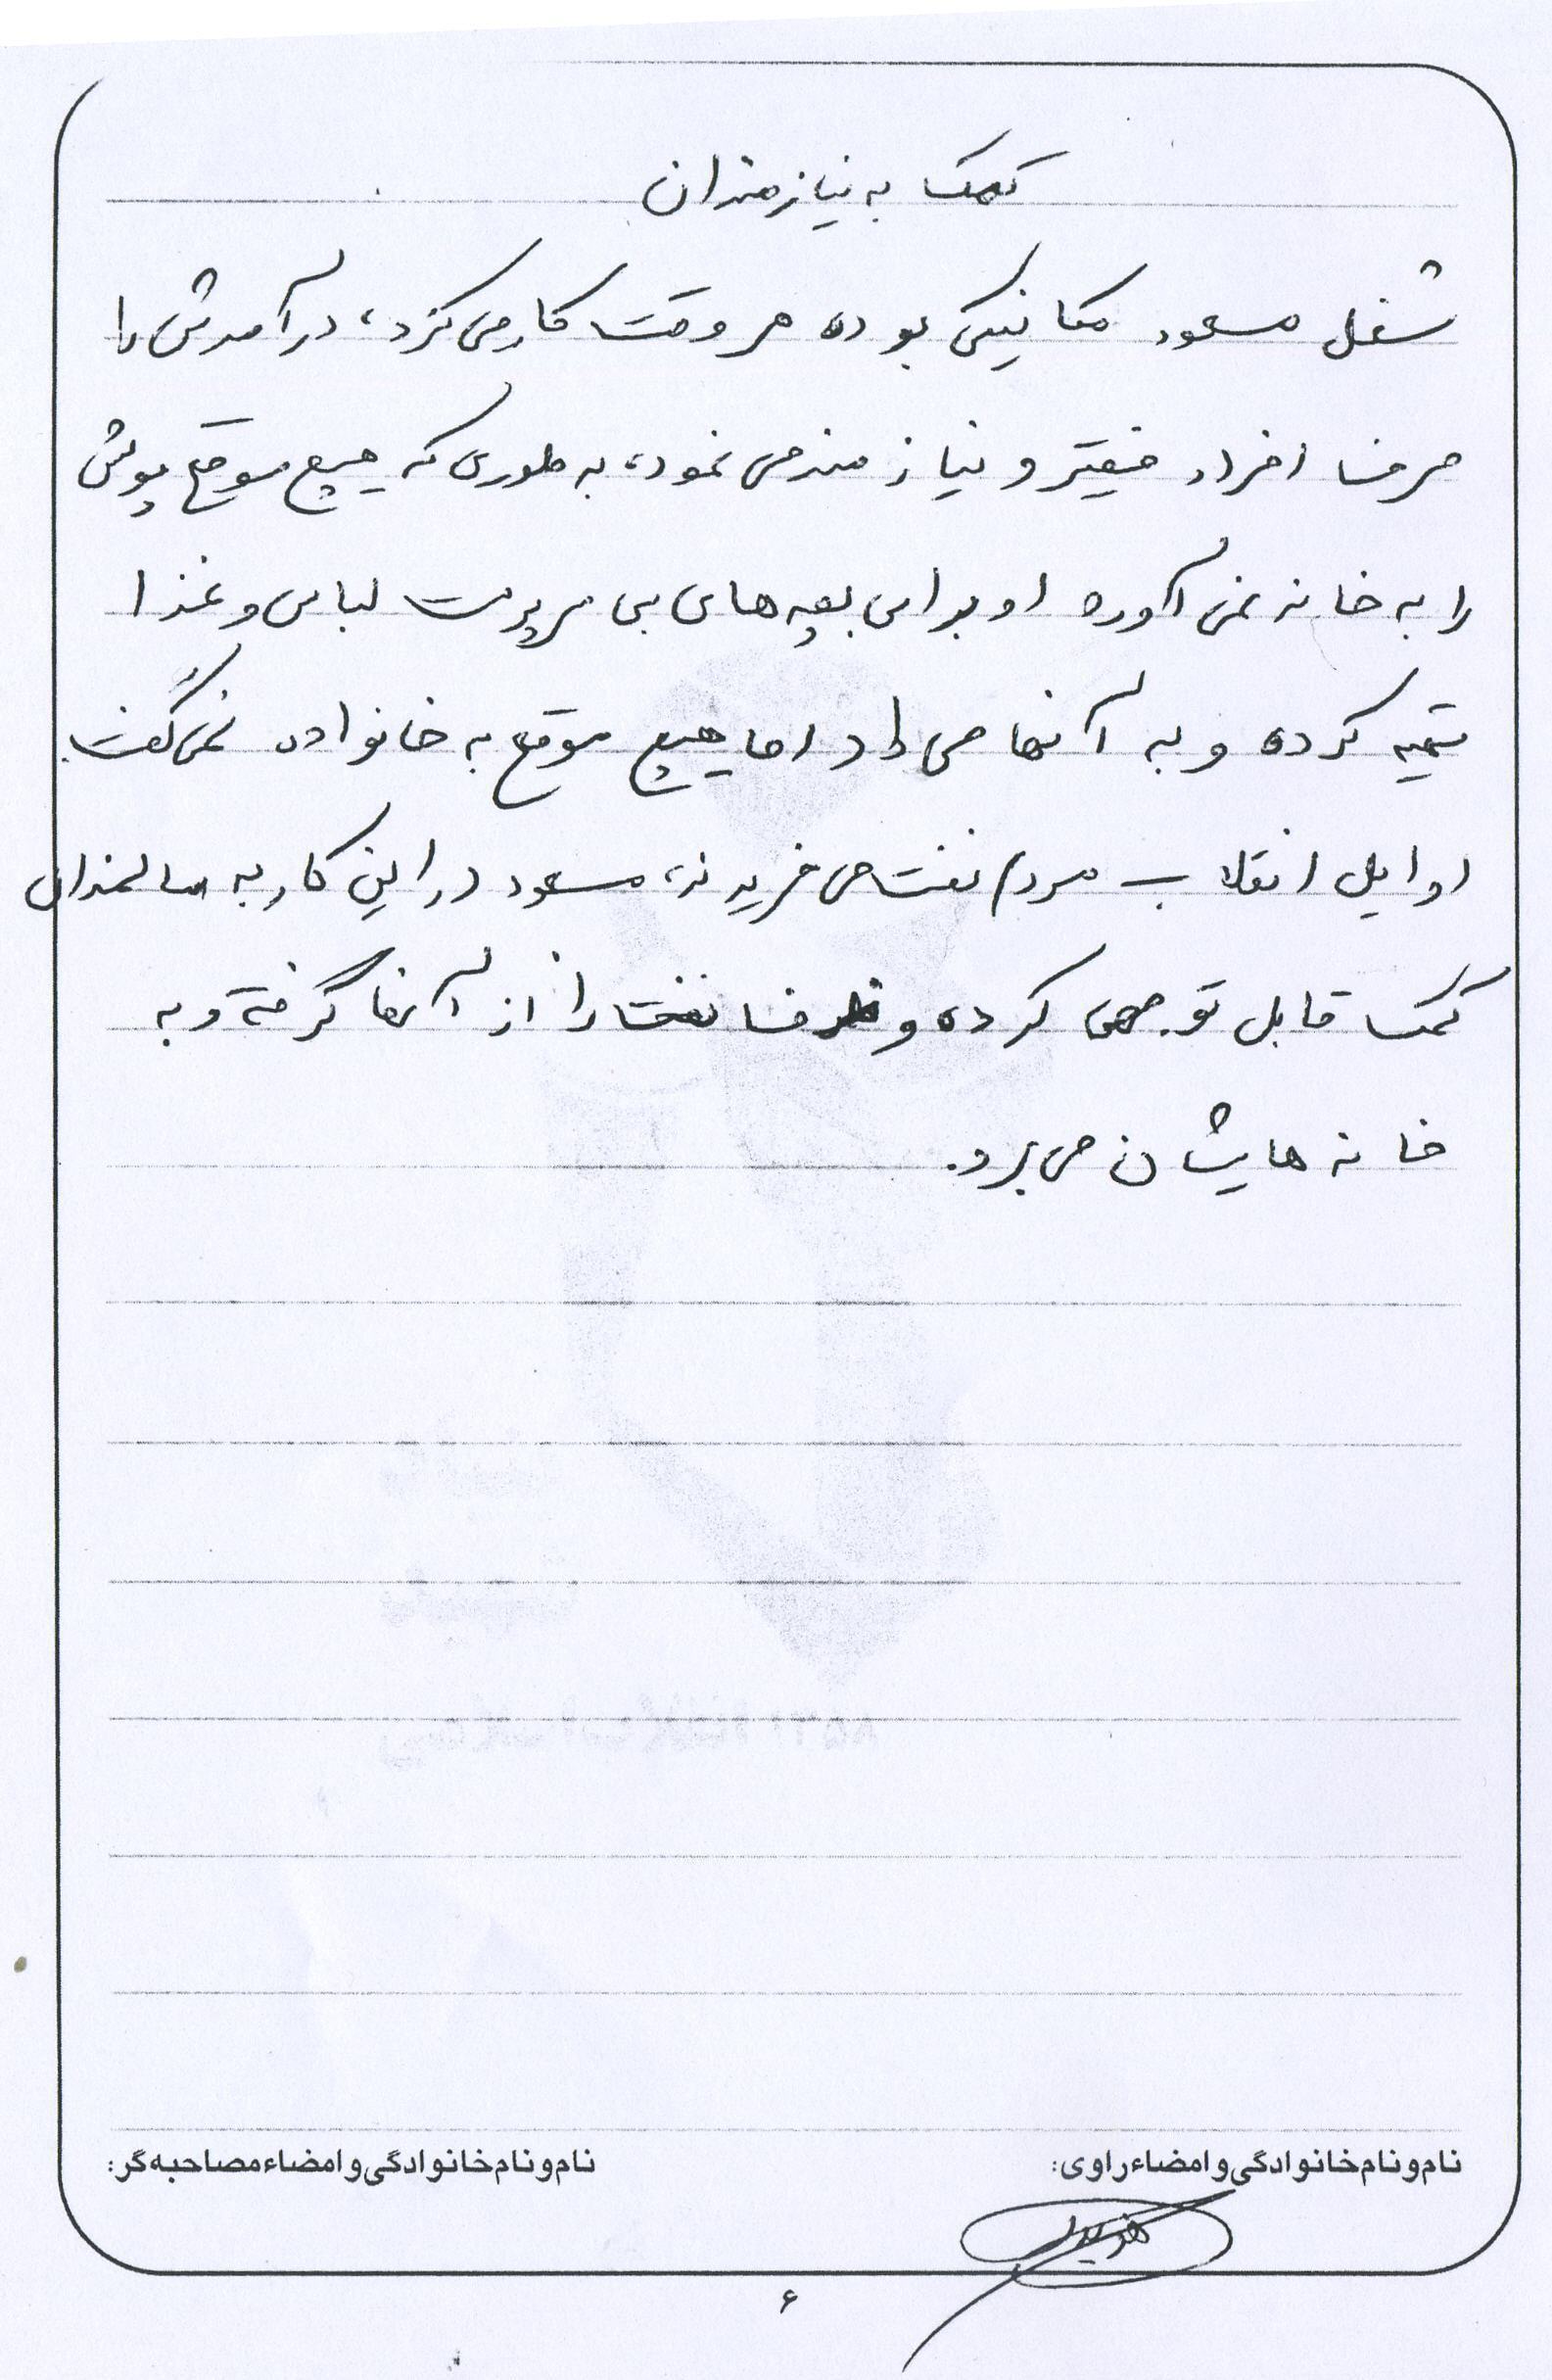 کمک به نیازمندان
شغل مسعود مکانیکی بوده هر وقت کار می کرد، درآمدش را
صرف افراد فقیر و نیازمند می نمود، به طوری که هیچ موقع پولش
را به خانه نمی آورد او برای بچه های بی سرپرست لباس و غذا
تهیه کرده و به آنها می داد اما هیچ موقع به خانواده نمی گفت.
اوایل انقلاب مردم نفت می خریدند، مسعود در این کار به سالمندان
کمک قابل توجهی کرده و ظرف نفت را از آنها گرفته و به
خانه هایشان می برد.
نام و نام خانوادگی و امضاء راوی:
نام و نام خانوادگی و امضاء مصاحبه گر:
۶